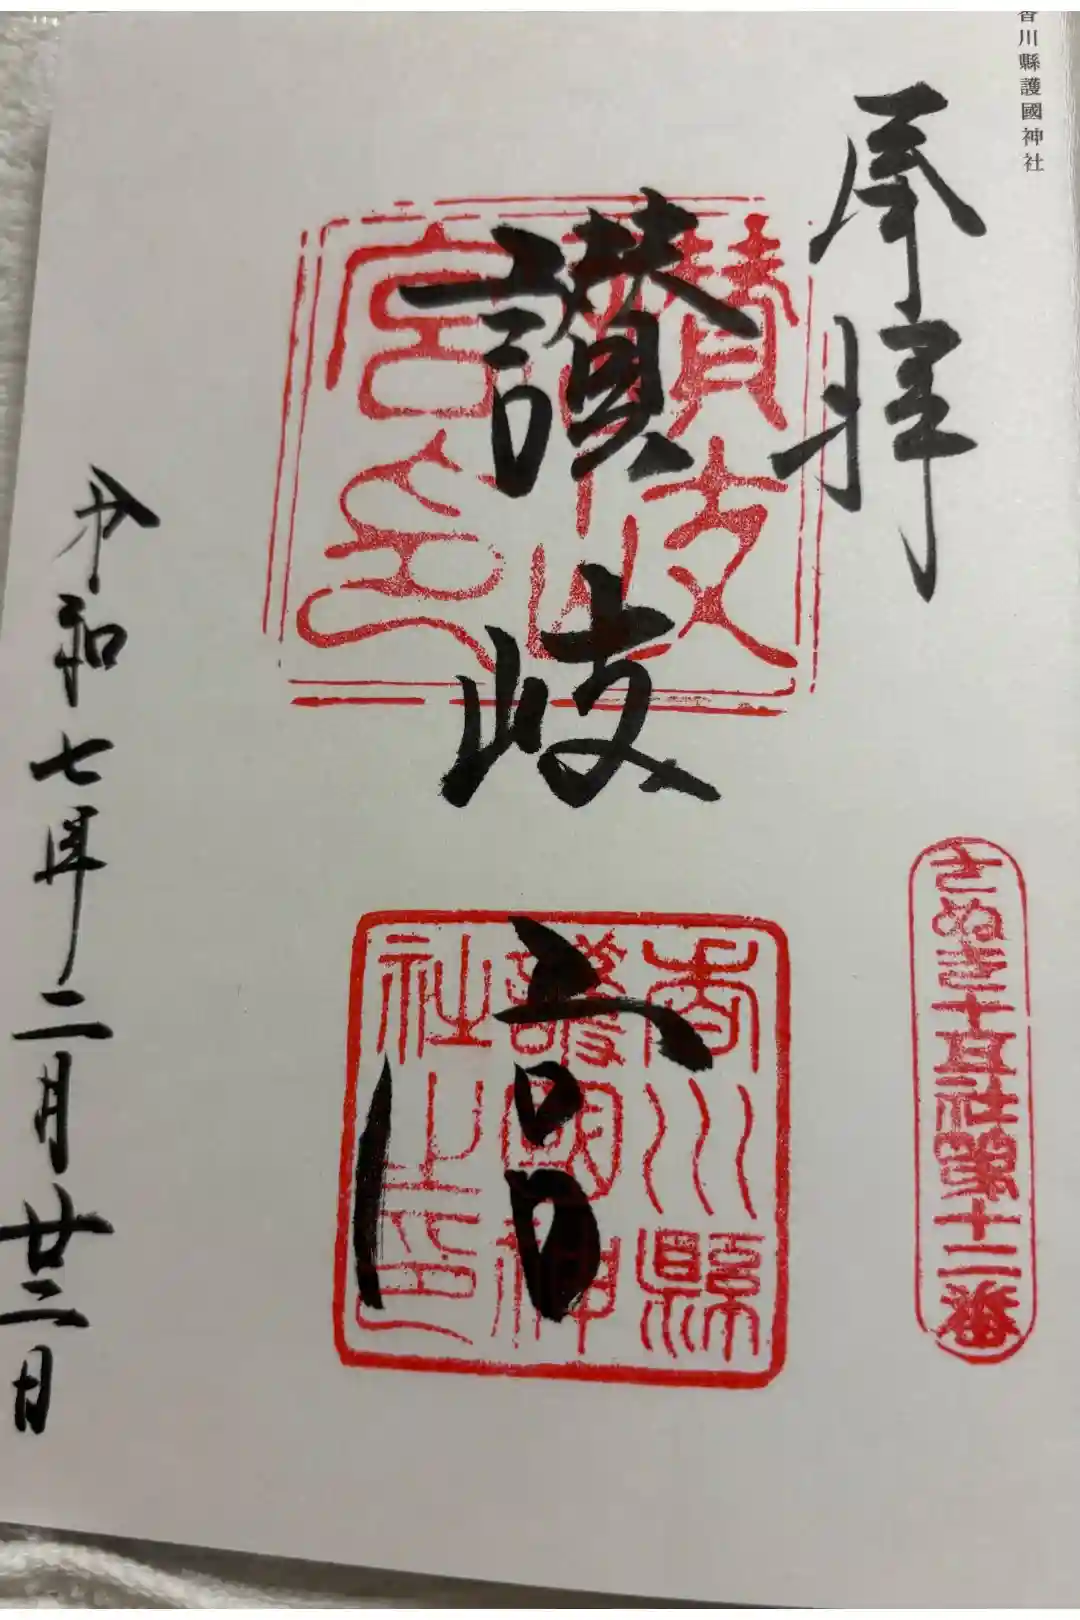 香川縣護國神社
奉拝
さぬき十五社第十二番
讃岐宮
讃岐宮印
香川縣護國神社之印
令和七年二月廿二日